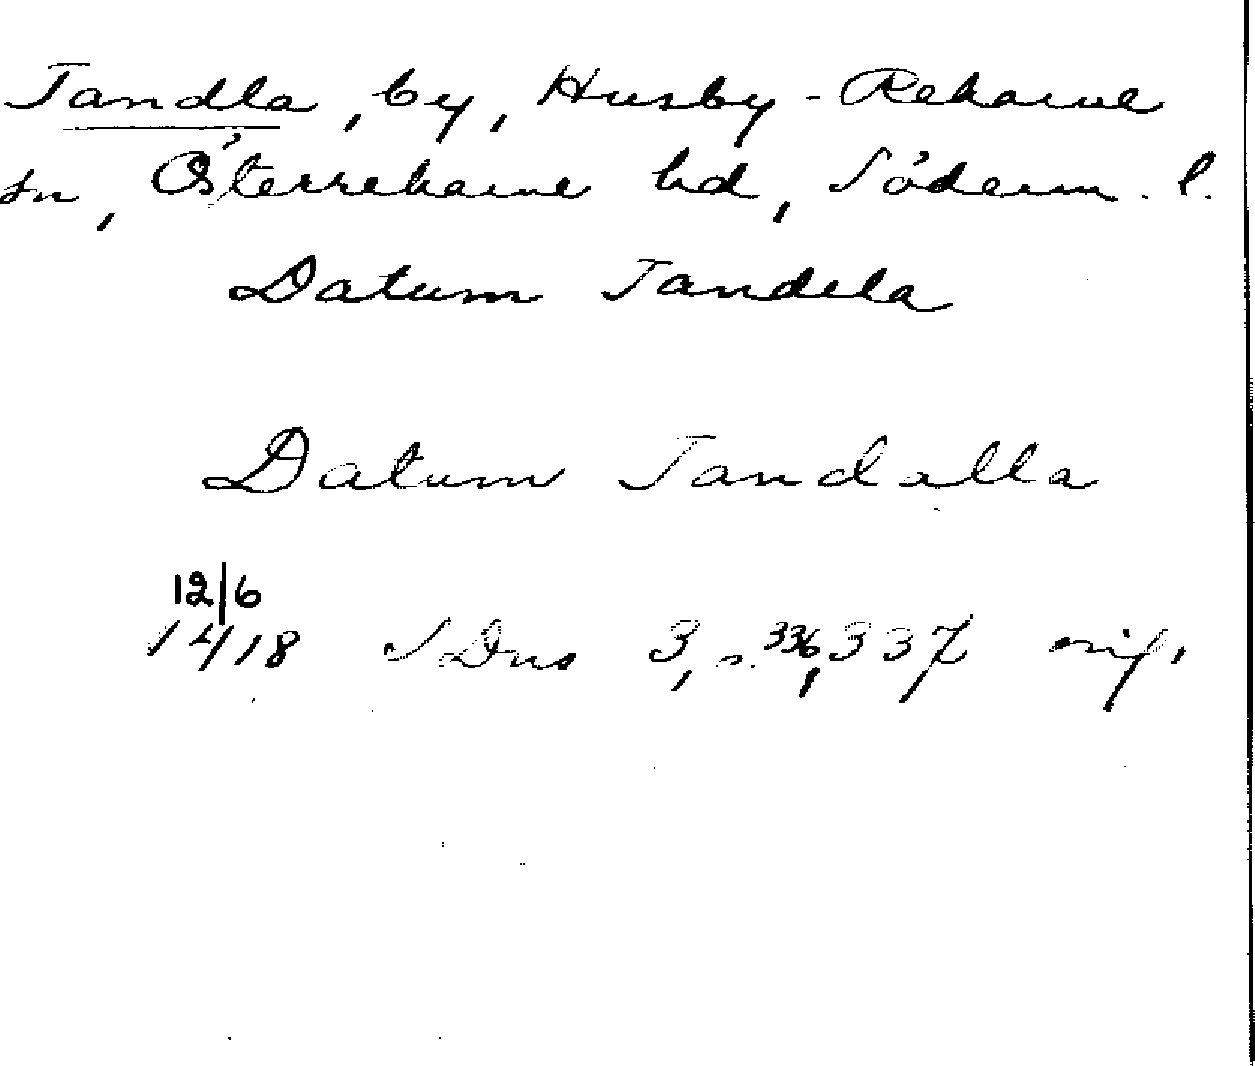 Tandla, by, Husby-Rekarne
sn, Österrekarne hd, Söderm. l.
Datum Tandela
Datum Tandalla
12/6
1418 SDns 3, s. 336, 337 orig.